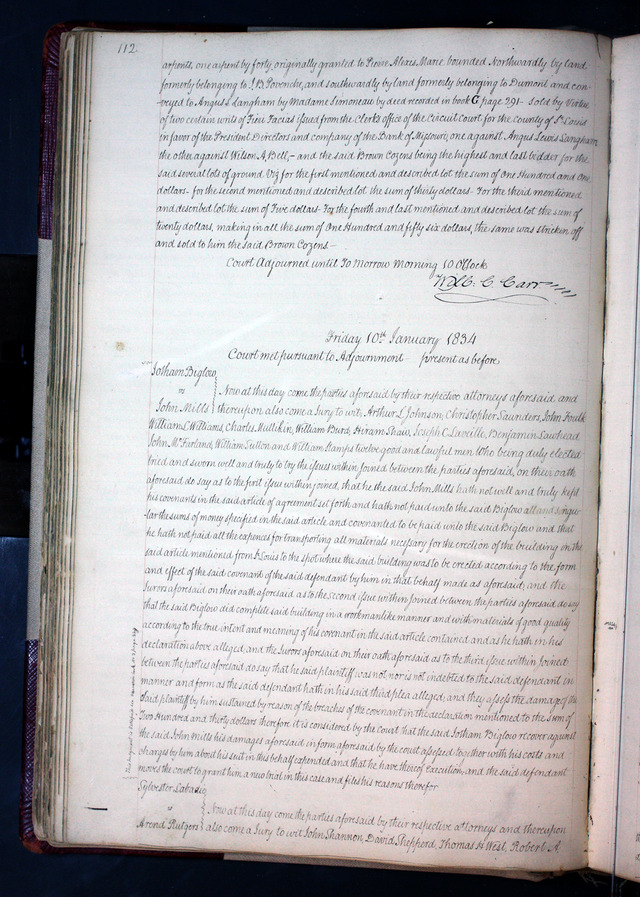 112
arpents, one aspent by forty, originally granted to Pierre Aliaes Marie bounded Northwardly by land
formerly belonging to J. B. Povenche, and southwardly by land formerly belonging to Dumont and con-
-veyed to Angus L Langham by Madame Simoneau by deed recorded in book G page 291- Sold by Virtue
of two certain writs of Fieri Facias issued from the Clerks office of the Circuit Court for the County of St Louis
in favor of the President Directors and company of the Bank of Missouri, one against Angus Lewis Langham,
the other against Wilson A, Bell,- and the said Brown Cozens being the highest and last bidder for the
said several lots of ground Viz for the first mentioned and described lot the sum of One Hundred and One
dollars- for the second mentioned and described lot the sum of thirty dollars- For the third mentioned
and described lot the sum of Five dollars- For the fourth and last mentioned and described lot the sum of
twenty dollars, making in all the sum of One Hundred and fifty six dollars, the same was stricken off
and sold to him the said Brown Cozens.-
Court Adjourned until To Morrow Morning 10 OClock
Will. C. Carr
Friday 10th January 1834
Court met pursuant to Adjournment present as before
Jotham Biglow
vs
John Mills
Now at this day come the parties aforesaid by their respective attorneys aforesaid and
thereupon also come a Jury to wit, Arthur L Johnson, Christopher Saunders, John Foulk
William L Williams, Charles Mullikin, William Burd, Hiram Shaw, Joseph C. Laveille, Benjamin Lawhead
John McFarland, William Sutton and William Stamps twelve good and lawful men who being duly elected
tried and sworn well and truly to try the issues within joined between the parties aforesaid, on their oath
aforesaid do say as to the first issue within joined, that he the said John Mills hath not well and truly kept
his covenants in the said article of agreement set forth and hath not paid unto the said Biglow all and singu-
lar the sums of money specified in the said article and covenanted to be paid unto the said Biglow and that
he hath not paid all the expences for transporting all materials necessary for the erection of the building on the
said article mentioned from St Louis to the spot where the said building was to be erected according to the form
and effect of the said covenant of the said defendant by him in that behalf made as aforesaid; and the
Jurors aforesaid on their oath aforesaid as to the second issue within joined between the parties aforesaid do say
that the said Biglow did complete said building in a workmanlike manner and with materials of good quality
according to the true intent and meaning of his covenant in the said article contained and as he hath in his
declaration above alleged, and the Jurors aforesaid on their oath aforesaid as to the third issue within joined
between the parties aforesaid do say that he said plaintiff was not nor is not indebted to the said defendant in
manner and form as the said defendant hath in his said third plea alleged, and they assess the damage of the
said plaintiff by him sustained by reason of the breaches of the covenant in the declaration mentioned to the Sum of
Two Hundred and thirty dollars therefore it is considered by the Court that the said Jotham Biglow recover against
the said John Mills his damages aforesaid in form aforesaid by the court assessed together with his costs and
charges by him about his suit in this behalf expended and that he have thereof execution, and the said defendant
moves the court to grant him a new trial in this case and files his reasons therefor
Sylvester Labadie
vs
Arend Rutgers
Now at this day come the parties aforesaid by their respective attorneys and thereupon
also come a Jury to wit John Shannon, David Shepperd, Thomas H West, Robert A,